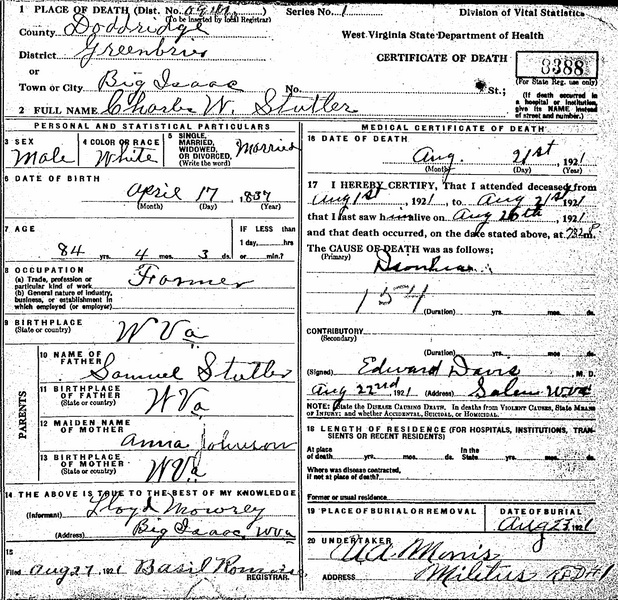 1 PLACE OF DEATH (Dist. No.
(To be inserted by local Registrar)
Series No. 1
Division of Vital Statistics
County Doddridge
West Virginia State Department of Health
District Greenbrier
CERTIFICATE OF DEATH
8388
(For State Reg. use only)
or
Town or City Big Isaac No. St.;
(If death occurred in a hospital or institution, give its NAME instead of street and number.)
2 FULL NAME Charles W. Stutler
PERSONAL AND STATISTICAL PARTICULARS
3 SEX
Male
4 COLOR OR RACE
White
5 SINGLE, MARRIED, WIDOWED, OR DIVORCED, (Write the word)
Married
6 DATE OF BIRTH
April 17, 1837
(Month) (Day) (Year)
7 AGE
84 yrs. 4 mos. 3 ds.
IF LESS than
1 day, hrs
or min.?
8 OCCUPATION
(a) Trade, profession or particular kind of work
Farmer
(b) General nature of industry, business, or establishment in which employed (or employer)
9 BIRTHPLACE
(State or country)
W Va
PARENTS
10 NAME OF FATHER
Samuel Stutler
11 BIRTHPLACE OF FATHER
(State or country)
W Va
12 MAIDEN NAME OF MOTHER
Anna Johnson
13 BIRTHPLACE OF MOTHER
(State or country)
W Va
14 THE ABOVE IS TRUE TO THE BEST OF MY KNOWLEDGE
(Informant) Lloyd Mowrey
(Address) Big Isaac, W Va
15
Filed Aug 27, 1921 Basil
REGISTRAR.
MEDICAL CERTIFICATE OF DEATH
16 DATE OF DEATH
Aug. 21st, 1921
(Month) (Day) (Year)
17 I HEREBY CERTIFY, That I attended deceased from
Aug 1st, 1921, to Aug 21st 1921
that I last saw him alive on Aug 20th, 1921
and that death occurred, on the date stated above, at m.
The CAUSE OF DEATH was as follows;
(Primary)
154
(Duration) yrs. mos. ds.
CONTRIBUTORY
(Secondary)
(Duration) yrs. mos. ds.
(Signed) Edward Davis, M. D.
Aug 22nd, 1921 (Address) Salem W Va
NOTE: State the DISEASE CAUSING DEATH. In deaths from VIOLENT CAUSES, State MEANS OF INJURY; and whether ACCIDENTAL, SUICIDAL, or HOMICIDAL.
18 LENGTH OF RESIDENCE (FOR HOSPITALS, INSTITUTIONS, TRANSIENTS OR RECENT RESIDENTS)
At place of death yrs. mos. ds. In the State yrs. mos. ds.
Where was disease contracted, if not at place of death?
Former or usual residence
19 PLACE OF BURIAL OR REMOVAL
DATE OF BURIAL
Aug 23, 1921
20 UNDERTAKER
Morris
ADDRESS Miletus RFD #1